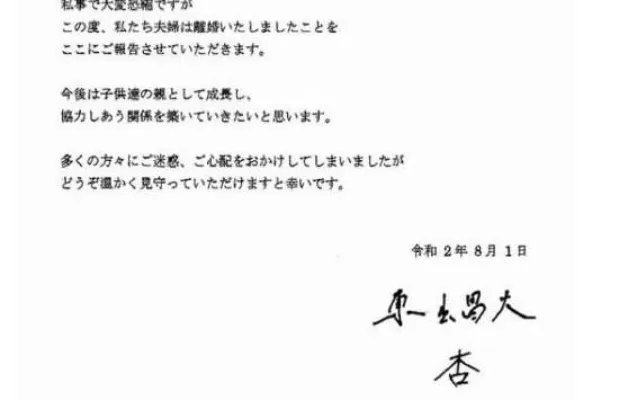 私事で大変恐縮ですが
この度、私たち夫婦は離婚いたしましたことを
ここにご報告させていただきます。
今後は子供達の親として成長し、
協力しあう関係を築いていきたいと思います。
多くの方々にご迷惑、ご心配をおかけしてしまいましたが
どうぞ温かく見守っていただけますと幸いです。
令和 2 年 8 月 1 日
東出昌大
杏